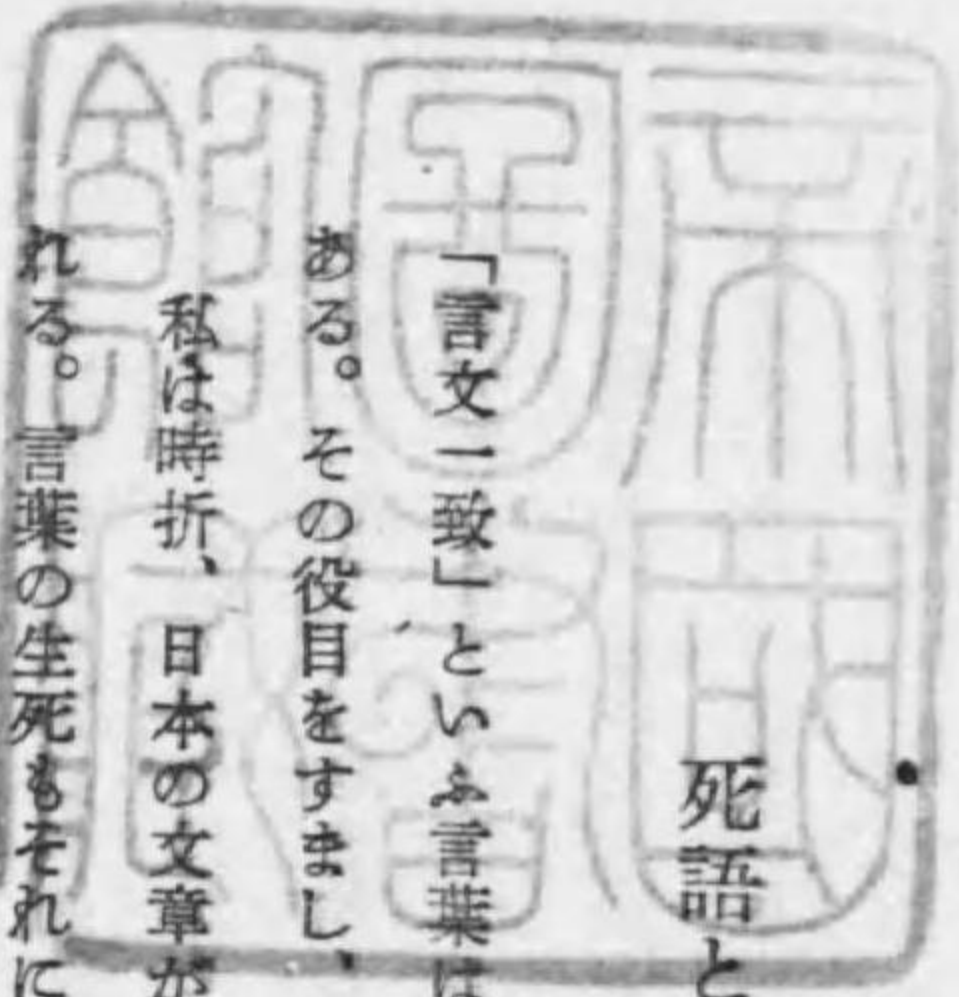 死語と
「言文一致」といふ言葉は
ある。その役目をすまし、
私は時折、日本の文章が
れる。言葉の生死もそれに